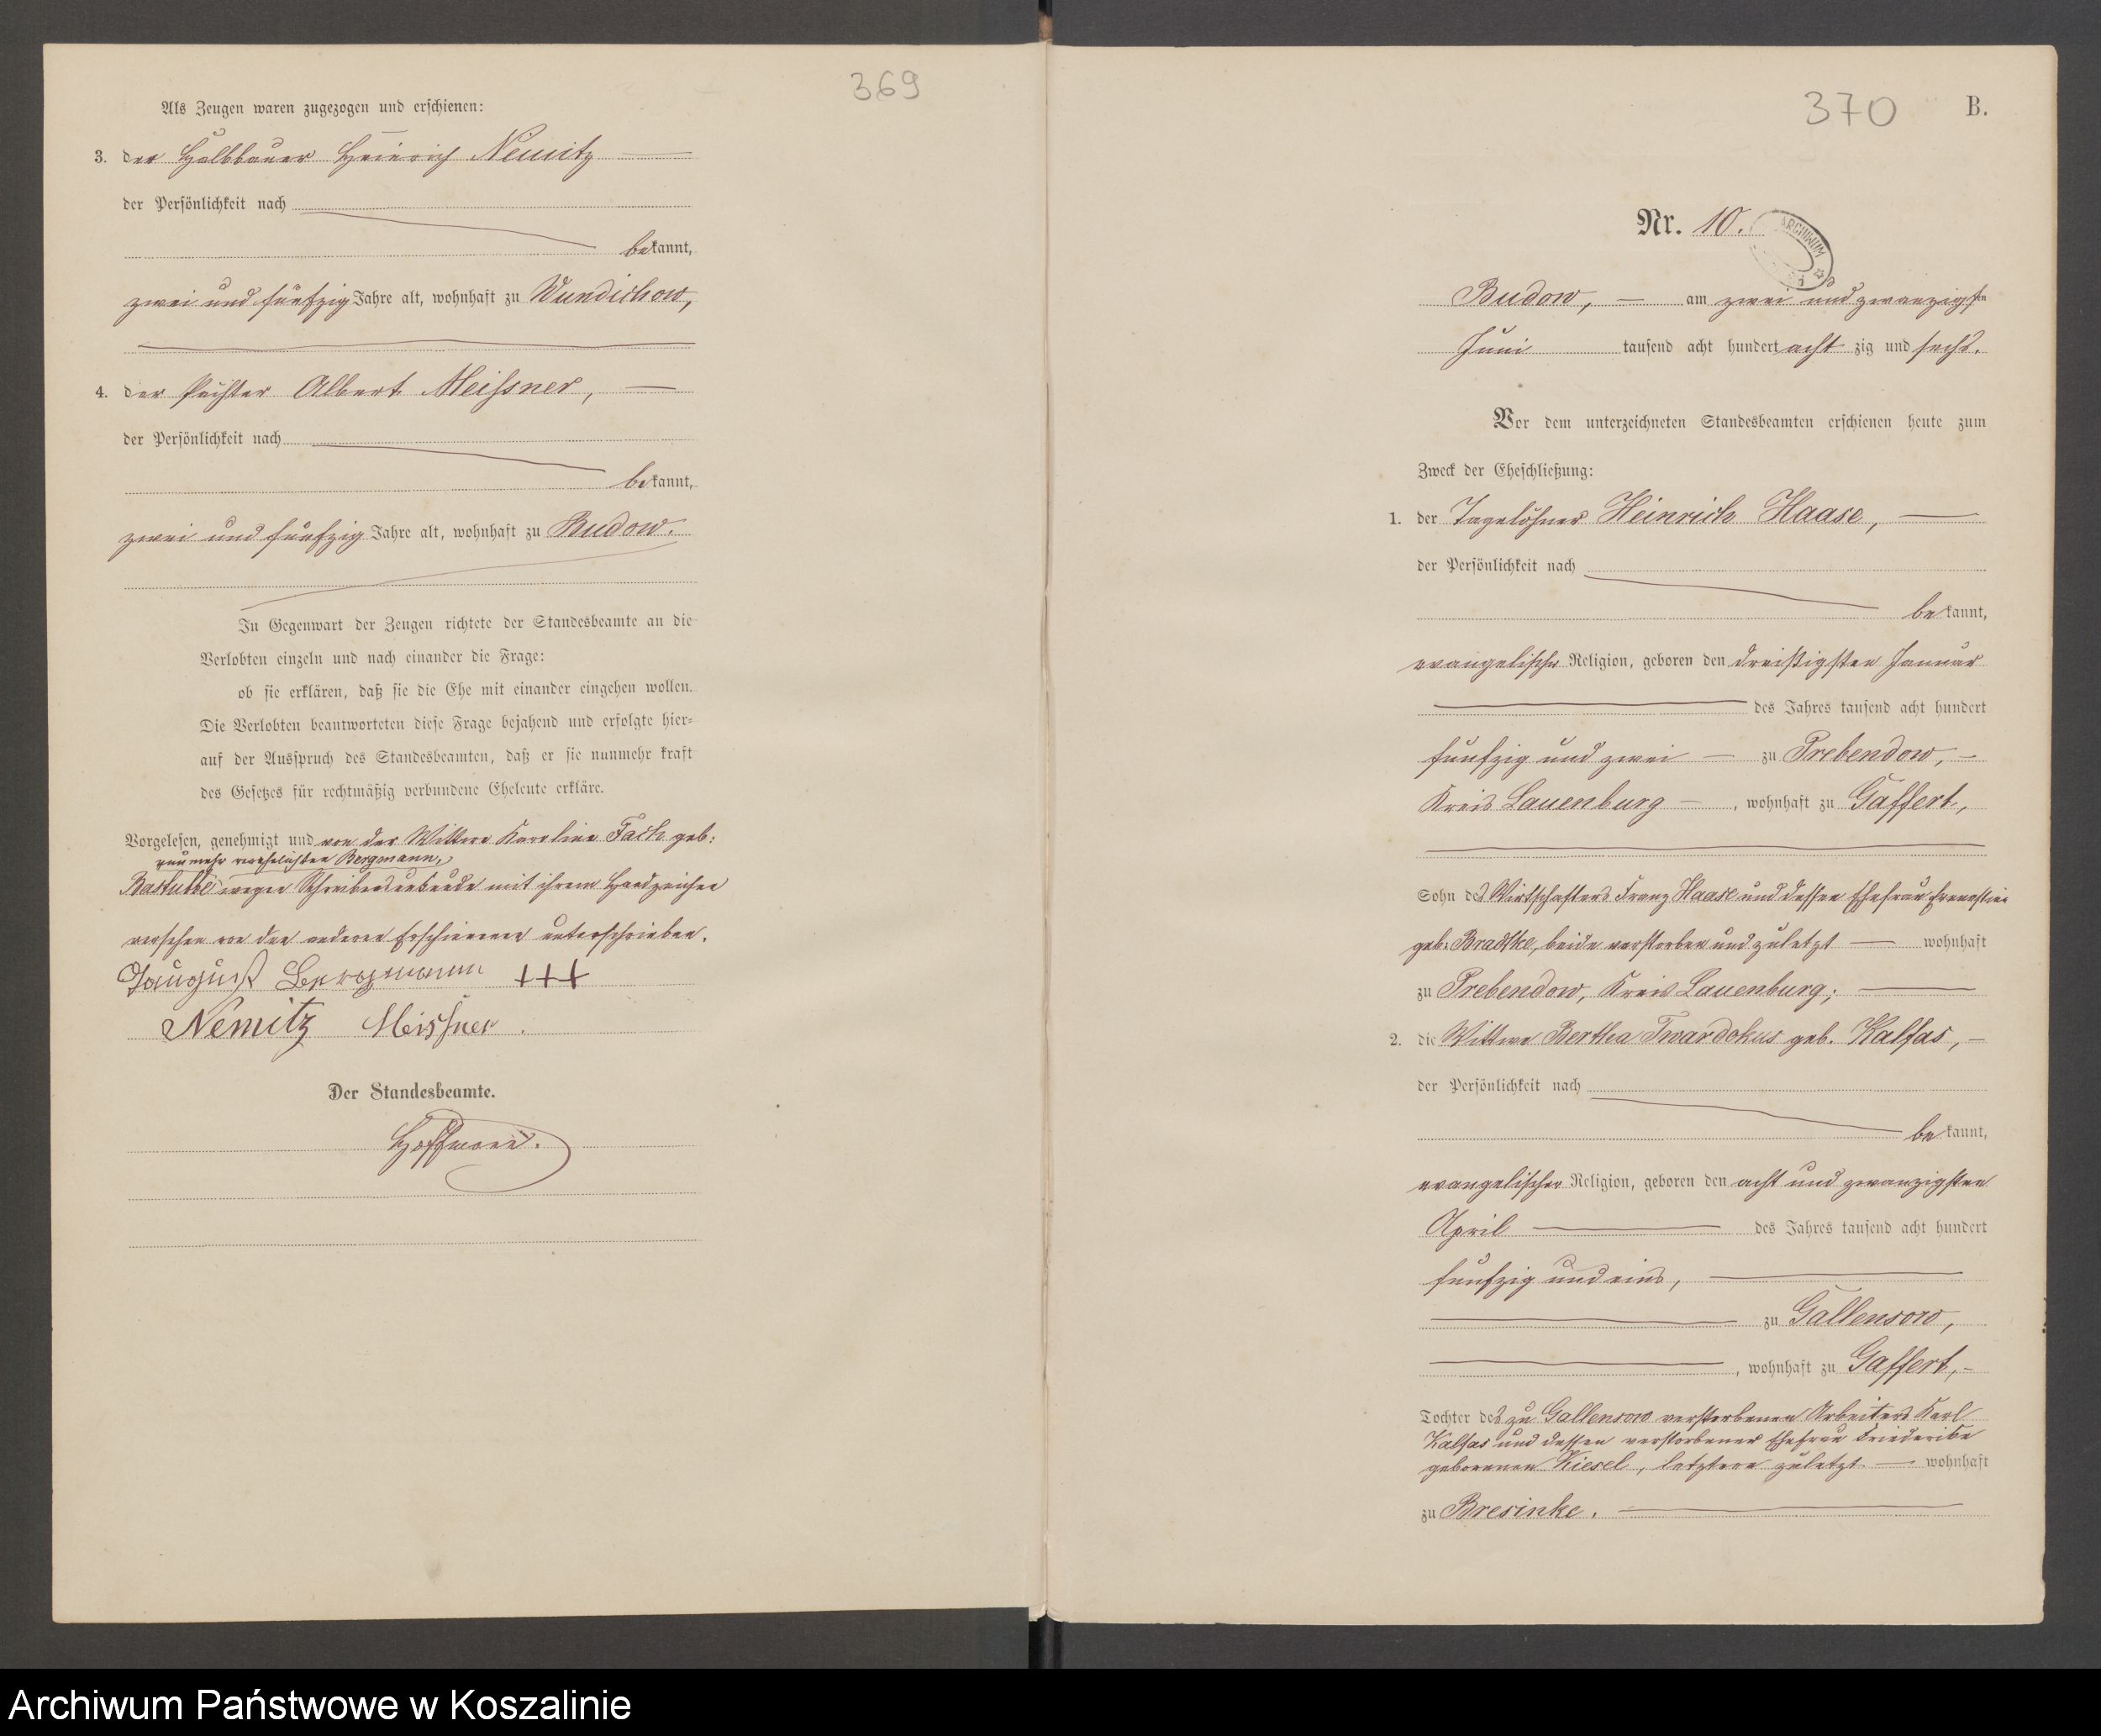 369
Als Zeugen waren zugezogen und erschienen:
3. der Halbbauer Heinrich Nemitz
der Persönlichkeit nach
bekannt,
zwei und fünfzig Jahre alt, wohnhaft zu Wundichow,
4. der Pächter Albert Meissner,
der Persönlichkeit nach
bekannt,
zwei und fünfzig Jahre alt, wohnhaft zu Budow.
In Gegenwart der Zeugen richtete der Standesbeamte an die
Verlobten einzeln und nach einander die Frage:
ob sie erklären, daß sie die Ehe mit einander eingehen wollen.
Die Verlobten beantworteten diese Frage bejahend und erfolgte hier-
auf der Ausspruch des Standesbeamten, daß er sie nunmehr kraft
des Gesetzes für rechtmäßig verbundene Eheleute erkläre.
Vorgelesen, genehmigt und von der Wittwe Karoline Fach geb:
nunmehr verehelichten Bergmann,
Bastubbe wegen Schreibensunkunde mit ihrem Handzeichen
versehen von den anderen Erschienenen unterschrieben.
August Bergmann +++
Nemitz Meissner.
Der Standesbeamte.
Hoffmann.
370 B.
Nr. 10.
ARCHIWUM
Budow, am zwei und zwanzigsten
Juni tausend acht hundert acht zig und sechs.
Vor dem unterzeichneten Standesbeamten erschienen heute zum
Zweck der Eheschließung:
1. der Tagelöhner Heinrich Haase,
der Persönlichkeit nach
bekannt,
evangelischer Religion, geboren den dreißigsten Januar
des Jahres tausend acht hundert
fünfzig und zwei zu Prebendow,
Kreis Lauenburg, wohnhaft zu Gaffert,
Sohn des Wirtschafters Franz Haase und dessen Ehefrau Ernestine
geb: Bradtke, beide verstorben und zuletzt wohnhaft
zu Prebendow, Kreis Lauenburg;
2. die Wittwe Bertha Twardokus geb. Kalfas,
der Persönlichkeit nach
bekannt,
evangelischer Religion, geboren den acht und zwanzigsten
April des Jahres tausend acht hundert
fünfzig und eins,
zu Gallensow,
, wohnhaft zu Gaffert,
Tochter des zu Gallensow verstorbenen Arbeiters Karl
Kalfas und dessen verstorbener Ehefrau Friederike
geborenen Kiesel, letztere zuletzt wohnhaft
zu Bresinke.
Archiwum Państwowe w Koszalinie